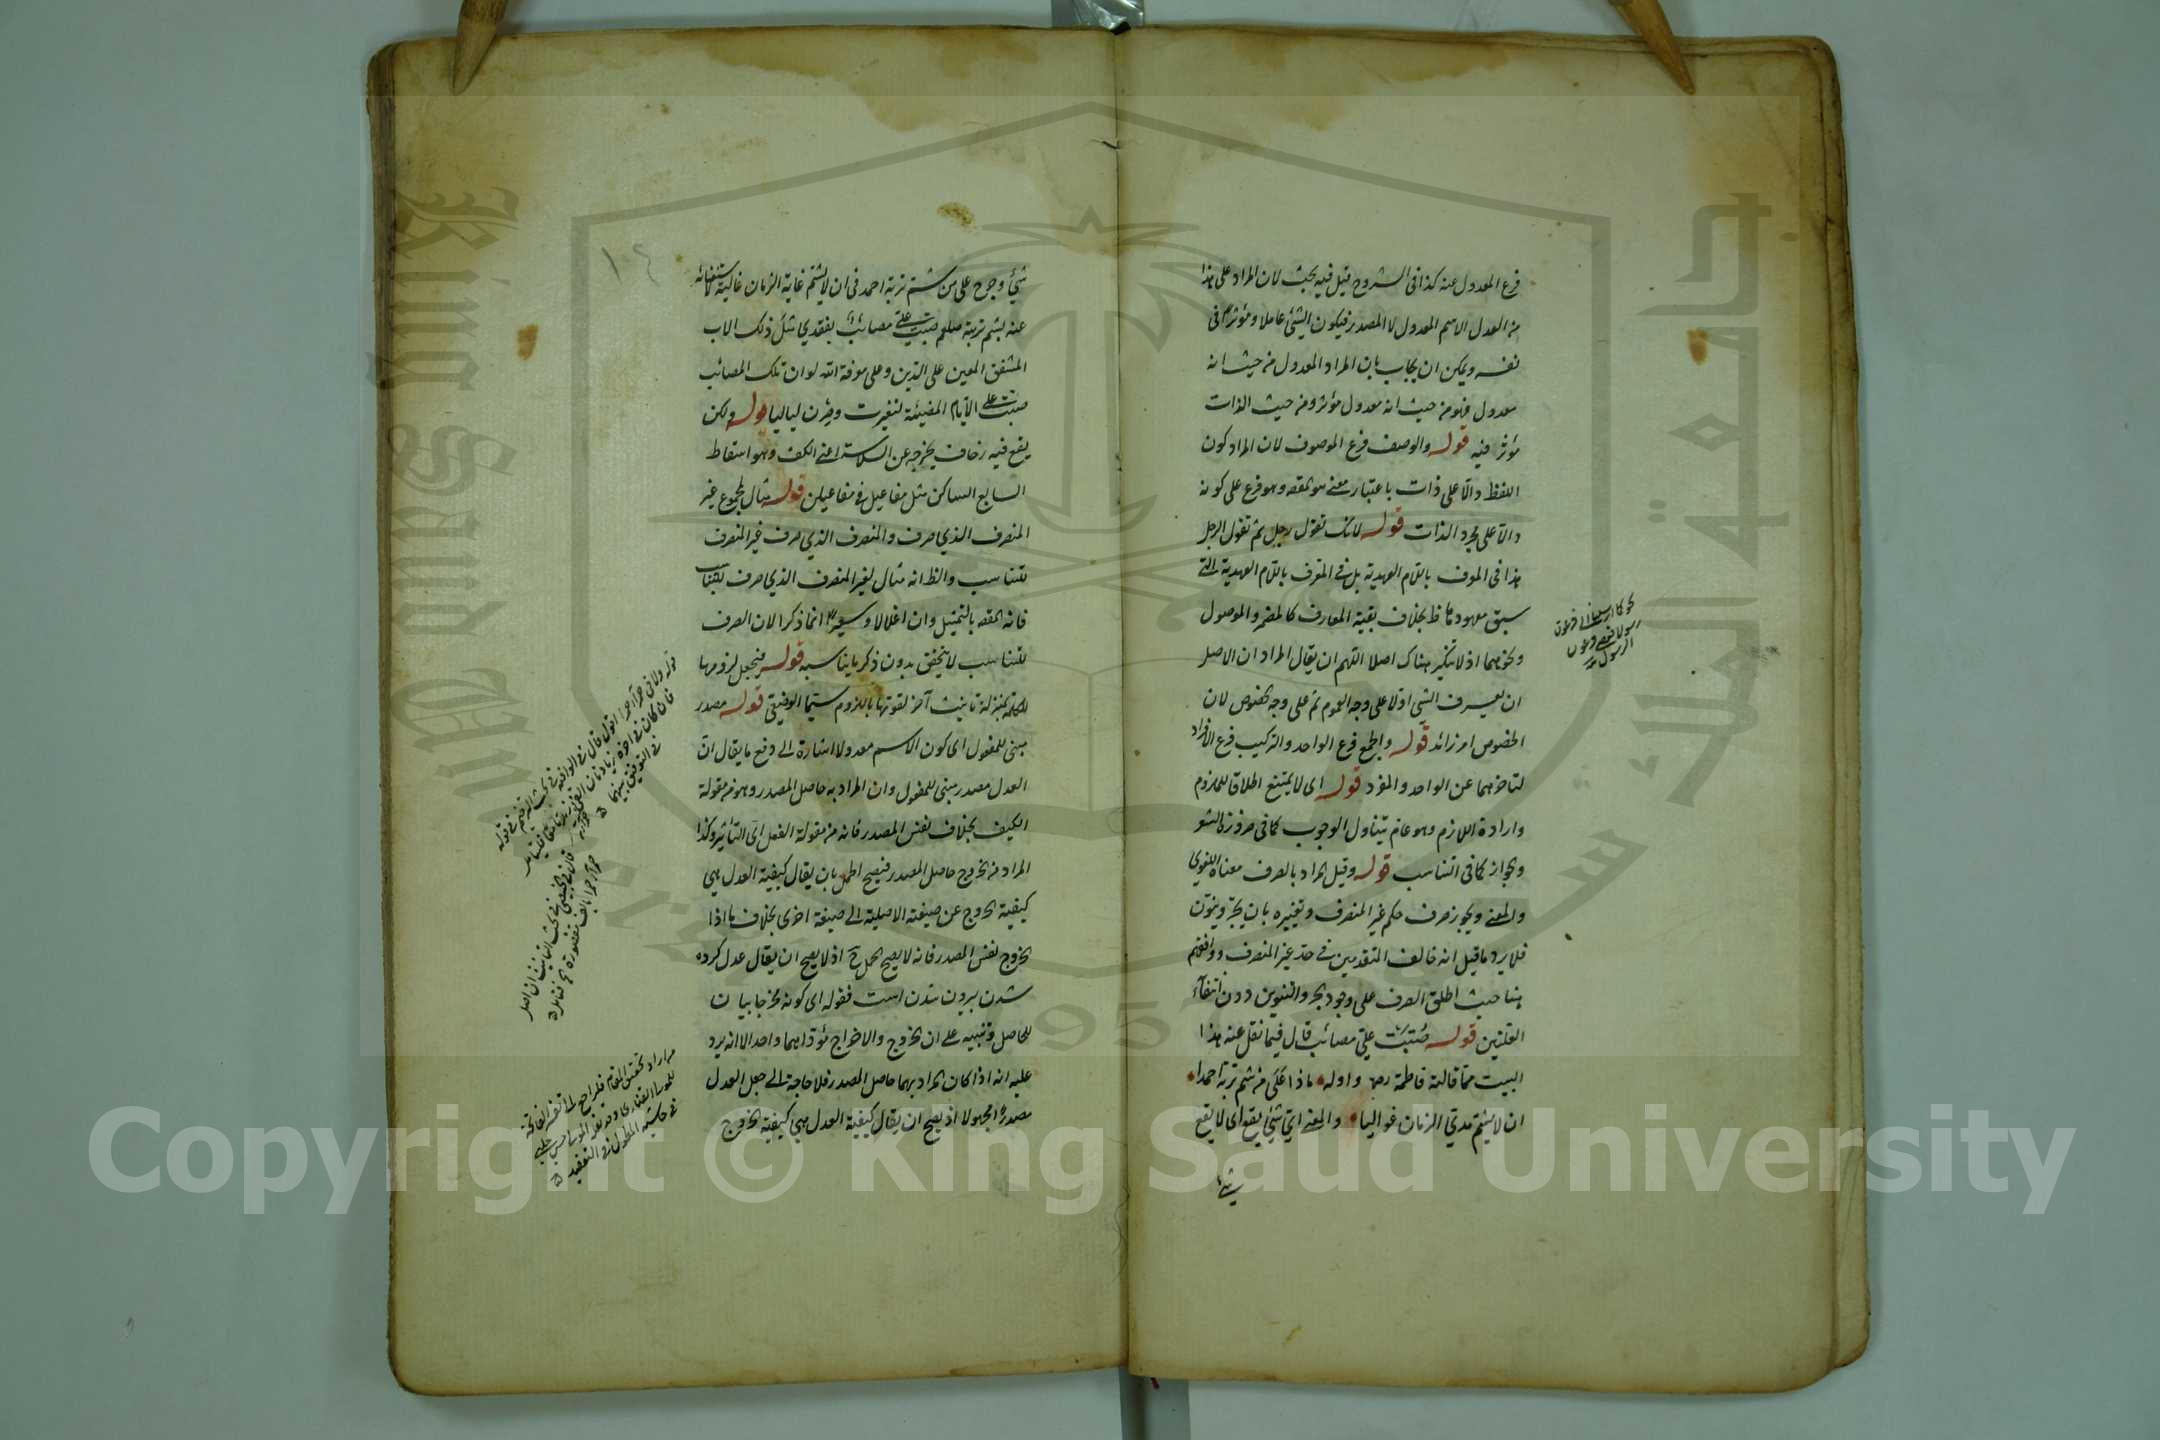 فرع المعدول عنه كذا فى الشروح قيل فيه بحث لان المراد على هذا
من العدل الاسم المعدول لا المصدر فيكون الشئ عاملا ومؤثرا فى
نفسه ويمكن ان يجاب بان المراد المعدول من حيث انه
معدول فهو من حيث انه معدول مؤثر ومن حيث الذات
مؤثر فيه قوله والوصف فرع الموصوف لان المراد كون
اللفظ دالا على ذات باعتبار معنى هو المقصود وهو فرع على كونه
دالا على مجرد الذات قوله لانك تقول رجل ثم تقول الرجل
هذا فى المعرف باللام العهدية بل فى المعرف باللام العهدية التى
سبق معهودها بخلاف بقية المعارف كالمضمر والموصول
ونحوهما اذ لا تنكير هناك اصلا اللهم ان يقال المراد ان الاصل
ان يعرف الشئ اولا على وجه العموم ثم على وجه الخصوص لان
الخصوص امر زائد قوله والجمع فرع الواحد والتركيب فرع الافراد
لتاخرهما عن الواحد والمفرد قوله اى لا يمتنع اطلاقا للملزوم
وارادة اللازم وهو عام يتناول الوجوب كما فى ضرورة الشعر
والجواز كما فى التناسب قوله وقيل المراد بالصرف معناه اللغوى
والمعنى ويجوز صرف حكم غير المنصرف وتغييره بان يجر وينون
فلا يرد ما قيل انه خالف المتقدمين فى حد غير المنصرف ووافقهم
هنا حيث اطلق الصرف على وجود الجر والتنوين دون انتفاء
العلتين قوله صبت على مصائب قال فيما نقل عنه هذا
البيت مما قالته فاطمة رضها واوله ماذا على من شم تربة احمدا
ان لا يشتم مدى الزمان غواليا والمعنى اى شئ يقع اى لا يقع
شئ
١٤
شئ وجرح على من شم تربة احمد فى ان لا يشتم غاية الزمان غالية لاستغنائه
عنه بشم تربة صلعم صبت على مصائب بفقدى مثل ذلك الاب
المشفق المعين على الدين وعلى معرفة الله لو ان تلك المصائب
صبت على الايام المضيئة لتغيرت وصرن لياليا قوله ولكن
يقع فيه زحاف يخرجه عن السلاسة اعنى الكف وهو اسقاط
السابع الساكن مثل مفاعيل فى مفاعيلن قوله مثال لمجموع غير
المنصرف الذى صرف والمنصرف الذى صرف غير المنصرف
للتناسب والظ انه مثال لغير المنصرف الذى صرف للتناسب
فانه المقصود بالتمثيل وان اغلالا وسعيرا انما ذكرا لان الصرف
للتناسب لا يتحقق بدون ذكر ما يناسبه قوله فنجعل لزومها
للكلمة بمنزلة تانيث آخر لقوتها باللزوم سيما الوضعى قوله مصدر
مبنى للمفعول اى كون الاسم معدولا اشارة الى دفع ما يقال ان
العدل مصدر مبنى للمفعول وان المراد به حاصل المصدر وهو من مقولة
الكيف بخلاف نفس المصدر فانه من مقولة الفعل اى التأثير وكذا
المراد من الخروج حاصل المصدر فيصح الحمل بان يقال كيفية العدل هى
كيفية الخروج عن صيغته الاصلية الى صيغة اخرى بخلاف ما اذا
الخروج نفس المصدر فانه لا يصح الحمل ح اذ لا يصح ان يقال عدل كرده
شدن بيرون شدن است فقوله اى كونه مخرجا بيان
للحاصل وتنبيه على ان الخروج والاخراج مؤداهما واحد الا انه يرد
عليه انه اذا كان المراد بهما حاصل المصدر فلا حاجة الى جعل العدل
مصدرا مجهولا اذ يصح ان يقال كيفية العدل هى كيفية الخروج
Copyright © King Saud University